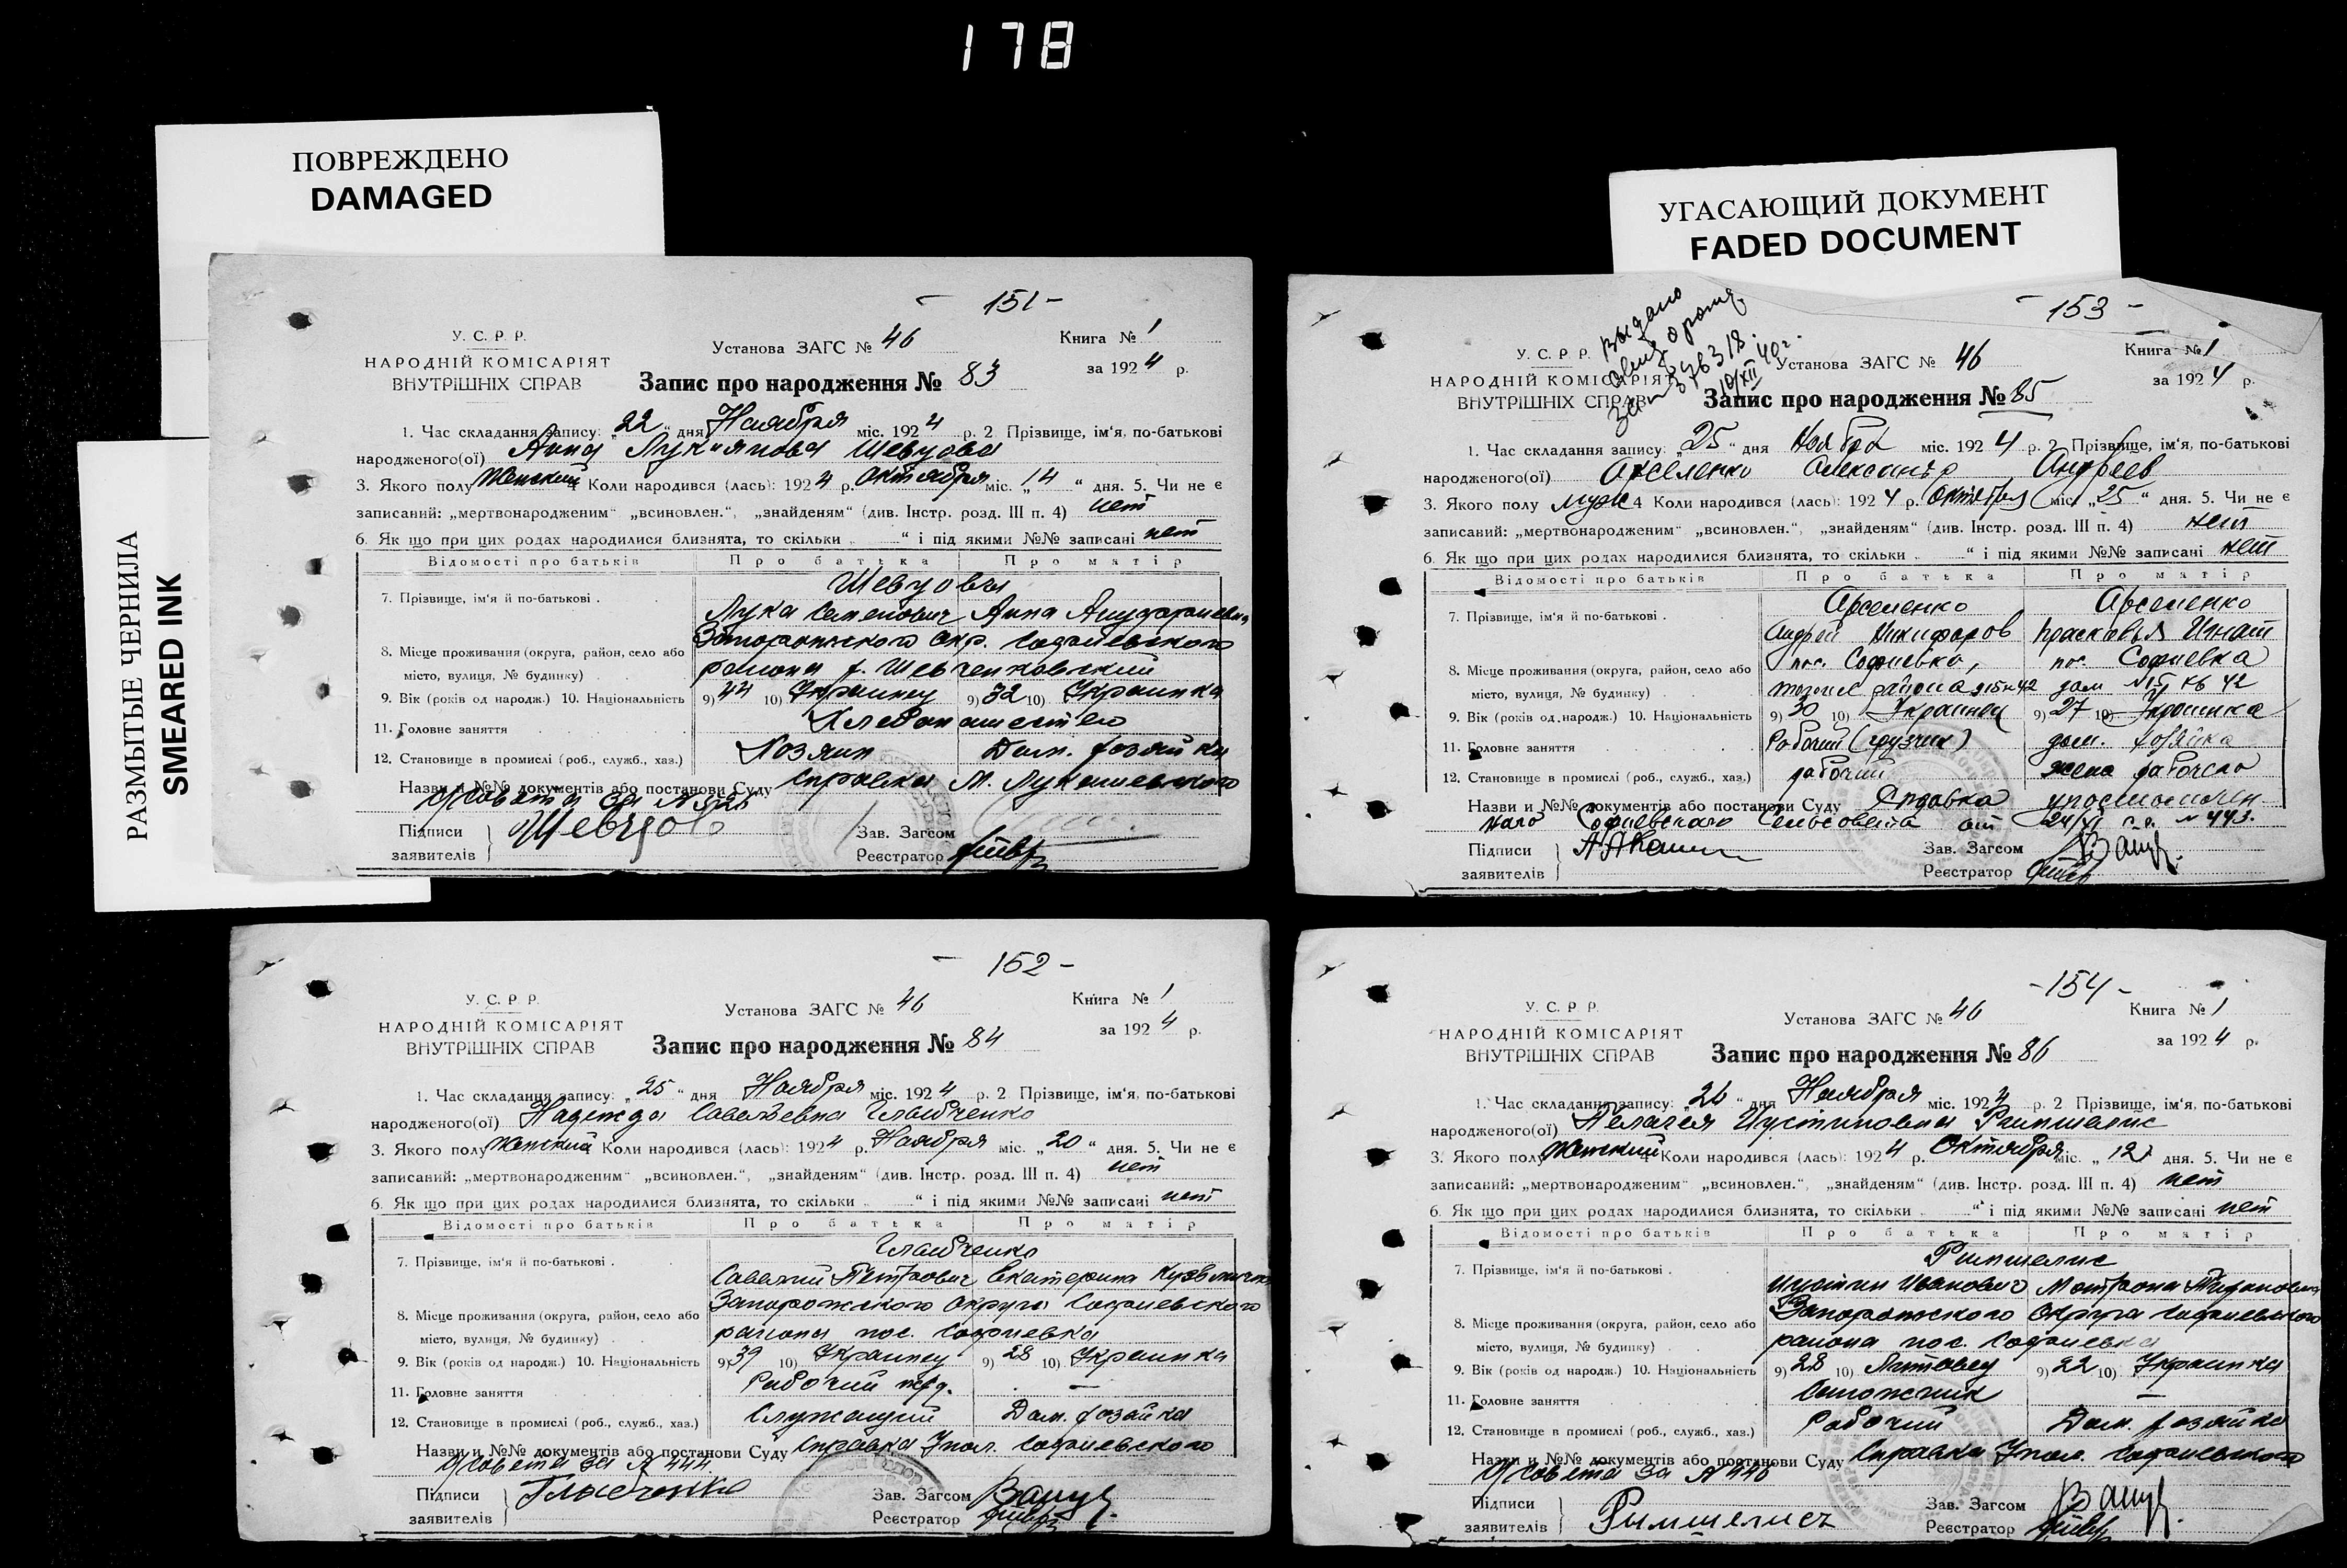 178
ПОВРЕЖДЕНО
DAMAGED
РАЗМЫТЫЕ ЧЕРНИЛА
SMEARED INK
УГАСАЮЩИЙ ДОКУМЕНТ
FADED DOCUMENT
- 151 -
У. С. Р. Р.
НАРОДНІЙ КОМІСАРІЯТ
ВНУТРІШНІХ СПРАВ
Установа ЗАГС № 46
Книга № 1
за 1924 р.
Запис про народження № 83
1. Час складання запису: „22“ дня Ноября міс. 1924 р. 2 Прізвище, ім‘я, по-батькові
народженого(ої) Анна Лукьянова Шевцова
3. Якого полу Женский 4 Коли народився (лась): 1924 р. Октября міс. „14“ дня. 5. Чи не є
записаний: „мертвонародженим“ „всиновлен.“, „знайденям“ (див. Інстр. розд. III п. 4) нет
6. Як що при цих родах народилися близнята, то скільки „ “ і під якими №№ записані нет
Відомості про батьків Про батька Про матір
7. Прізвище, ім‘я й по-батькові . Шевцовы
Лука Семенович Анна
8. Місце проживання (округа, район, село або Запорожского окр. Софиевского
місто, вулиця, № будинку) . района х. Шевченковский
9. Вік (років од народж.) 10. Національність 9) 44 10) Украинец 9) 32 10) Украинка
11. Головне заняття Хлебопашество
12. Становище в промислі (роб., служб., хаз.) Хозяин Дом. хозяйка
Назви и №№ документів або постанови Суду Справка М. Лукашевского
с/совета за №
Підписи
заявителів Шевцов
Зав. Загсом
Реєстратор
- 153 -
Выдано
У. С. Р. Р.
НАРОДНІЙ КОМІСАРІЯТ
ВНУТРІШНІХ СПРАВ
10/XII 40 г.
Установа ЗАГС № 46
Книга № 1
за 1924 р.
Запис про народження № 85
1. Час складання запису: „25“ дня Ноября міс. 1924 р. 2 Прізвище, ім‘я, по-батькові
народженого(ої) Арселенко Александр Андреев
3. Якого полу муж 4 Коли народився (лась): 1924 р. Октября міс. „25“ дня. 5. Чи не є
записаний: „мертвонародженим“ „всиновлен.“, „знайденям“ (див. Інстр. розд. III п. 4) нет
6. Як що при цих родах народилися близнята, то скільки „ “ і під якими №№ записані нет
Відомості про батьків Про батька Про матір
7. Прізвище, ім‘я й по-батькові . Арселенко Арселенко
Андрей Никифоров Прасковья Игнат
8. Місце проживання (округа, район, село або пос. Софиевка, пос. Софиевка
місто, вулиця, № будинку) . района дом №15 кв 42
9. Вік (років од народж.) 10. Національність 9) 30 10) Украинец 9) 27 10) Украинка
11. Головне заняття Рабочий (грузчик) дом. хозяйка
12. Становище в промислі (роб., служб., хаз.) рабочий жена рабочего
Назви и №№ документів або постанови Суду Справка уполномочен
ного Софиевского сельсовета от 24/XI с.г. № 443.
Підписи
заявителів
Зав. Загсом
Реєстратор
- 152 -
У. С. Р. Р.
НАРОДНІЙ КОМІСАРІЯТ
ВНУТРІШНІХ СПРАВ
Установа ЗАГС № 46
Книга № 1
за 1924 р.
Запис про народження № 84
1. Час складання запису: „25“ дня Ноября міс. 1924 р. 2 Прізвище, ім‘я, по-батькові
народженого(ої) Надежда Савельевна Глабченко
3. Якого полу Женский Коли народився (лась): 1924 р. Ноября міс. „20“ дня. 5. Чи не є
записаний: „мертвонародженим“ „всиновлен.“, „знайденям“ (див. Інстр. розд. III п. 4) нет
6. Як що при цих родах народилися близнята, то скільки „ “ і під якими №№ записані нет
Відомості про батьків Про батька Про матір
7. Прізвище, ім‘я й по-батькові . Глабченко
Савелий Петрович Екатерина
8. Місце проживання (округа, район, село або Запорожского округа Софиевского
місто, вулиця, № будинку) . района пос. Софиевка
9. Вік (років од народж.) 10. Національність 9) 39 10) Украинец 9) 28 10) Украинка
11. Головне заняття Рабочий жед. —
12. Становище в промислі (роб., служб., хаз.) Служащий Дом. хозяйка
Назви и №№ документів або постанови Суду Справка Упол. Софиевского
с/совета за № 444
Підписи
заявителів Глабченко
Зав. Загсом
Реєстратор
- 154 -
У. С. Р. Р.
НАРОДНІЙ КОМІСАРІЯТ
ВНУТРІШНІХ СПРАВ
Установа ЗАГС № 46
Книга № 1
за 1924 р.
Запис про народження № 86
1. Час складання запису: „26“ дня Ноября міс. 1924 р. 2 Прізвище, ім‘я, по-батькові
народженого(ої) Пелагея Иустиновна Римшелис
3. Якого полу Женский 4 Коли народився (лась): 1924 р. Октября міс. „12“ дня. 5. Чи не є
записаний: „мертвонародженим“ „всиновлен.“, „знайденям“ (див. Інстр. розд. III п. 4) нет
6. Як що при цих родах народилися близнята, то скільки „ “ і під якими №№ записані нет
Відомості про батьків Про батька Про матір
7. Прізвище, ім‘я й по-батькові . Римшелис
Иустин Иванович Матрона
8. Місце проживання (округа, район, село або Запорожского округа Софиевского
місто, вулиця, № будинку) . района пос. Софиевка
9. Вік (років од народж.) 10. Національність 9) 28 10) Литовец 9) 22 10) Украинка
11. Головне заняття Сапожник —
12. Становище в промислі (роб., служб., хаз.) Рабочий Дом. хозяйка
Назви и №№ документів або постанови Суду Справка Упол. Софиевского
с/совета за № 446
Підписи
заявителів Римшелис
Зав. Загсом
Реєстратор